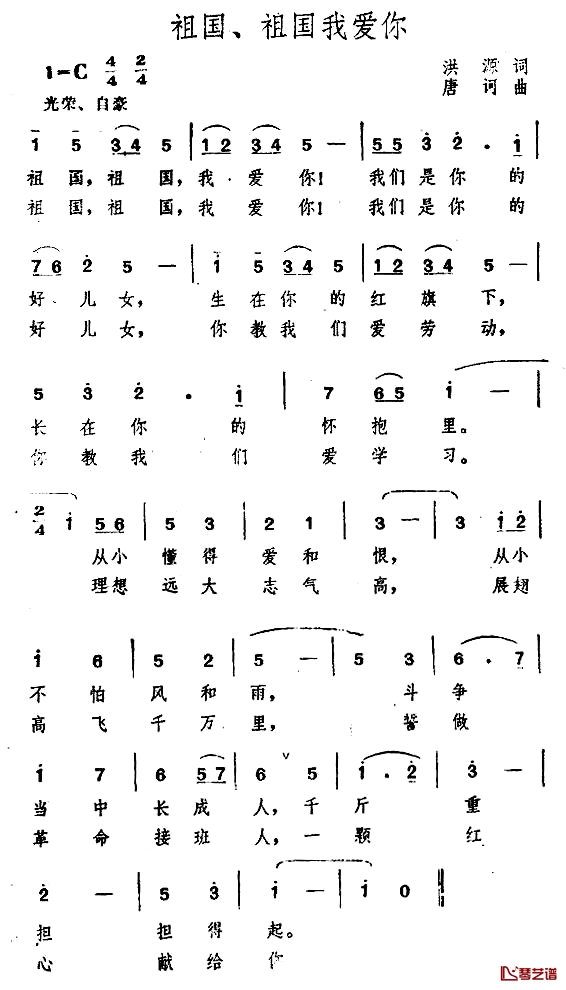 祖国、祖国我爱你
1=C 4/4 2/4
洪源词
唐诃曲
光荣、自豪
1 5 3 4 5 | 1 2 3 4 5 — | 5 5 3 2 . 1 |
祖国,祖国,我爱你!我们是你的
祖国,祖国,我爱你!我们是你的
7 6 2 5 — | 1 5 3 4 5 | 1 2 3 4 5 — |
好儿女,生在你的红旗下,
好儿女,你教我们爱劳动,
5 3 2 . 1 | 7 6 5 1 — |
长在你的怀抱里。
你教我们爱学习。
2/4 1 5 6 | 5 3 | 2 1 | 3 — | 3 1 2 |
从小懂得爱和恨,从小
理想远大志气高,展翅
1 6 | 5 2 | 5 — | 5 3 | 6 . 7 |
不怕风和雨,斗争
高飞千万里,誓做
1 7 | 6 5 7 | 6 ∨ 5 | 1 . 2 | 3 — |
当中长成人,千斤重
革命接班人,一颗红
2 — | 5 3 | 1 — | 1 0 ‖
担担得起。
心献给你
琴艺谱